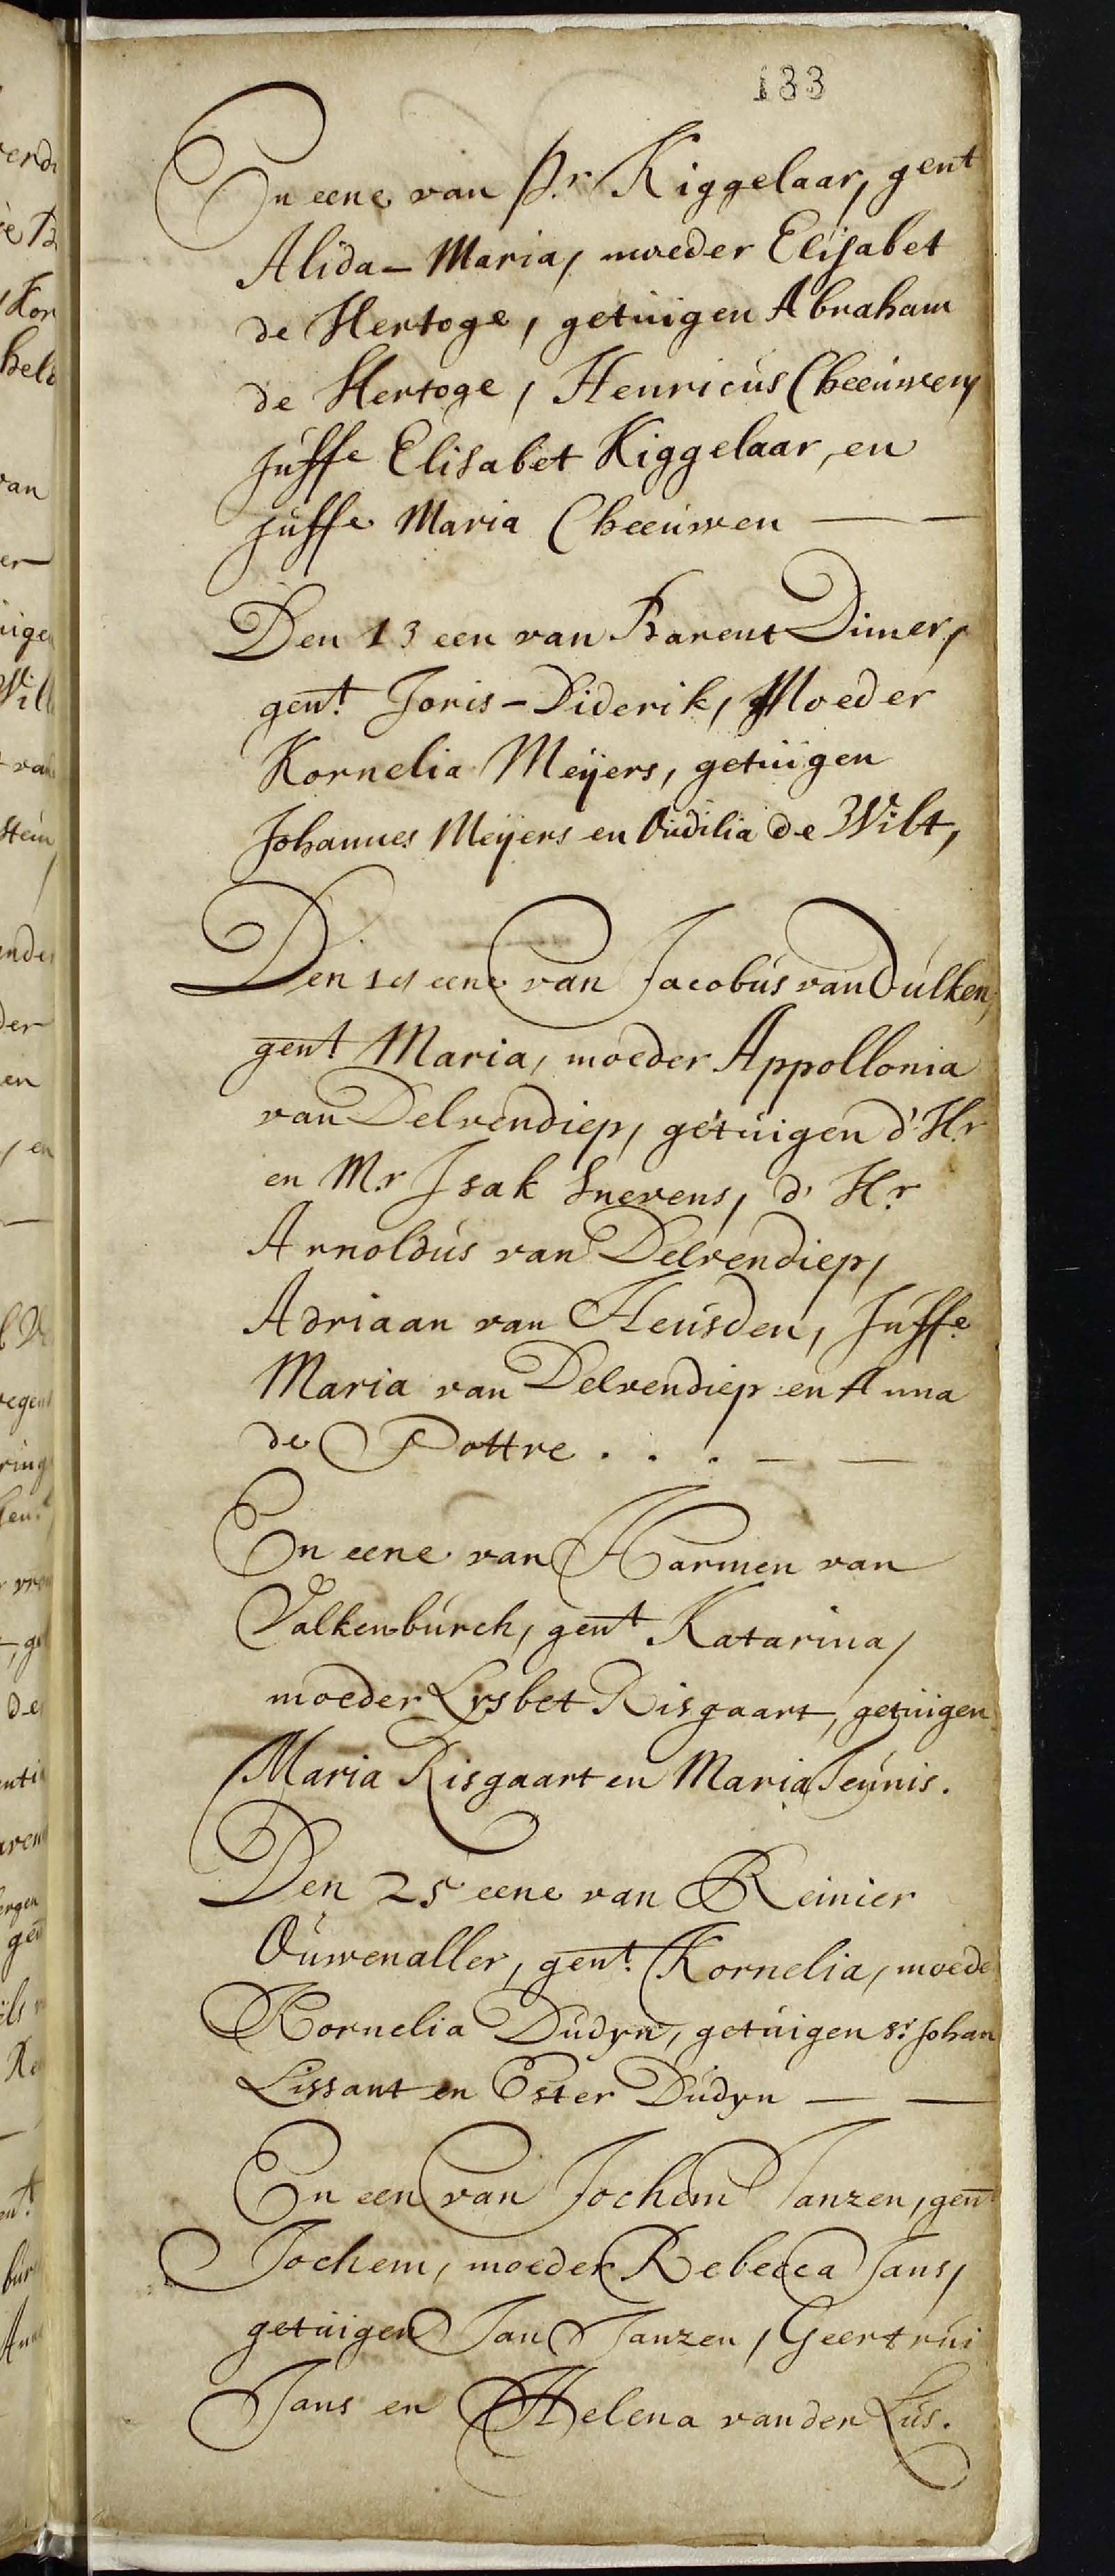 133
En eene van Pr. Kiggelaar, gent
Alida-Maria, moeder Elisabet
de Hertoge, getuigen Abraham
de Hertoge, Henricus Cheeuwen,
Juffe Elisabet Kiggelaar, en
Juffe Maria Cheeuwen — —
Den 13 een van Barent Dimer,
gent. Joris-Diderik, Moeder
Kornelia Meijers, getuigen
Johannes Meijers en Oudilia de Wilt,
Den eene van Jacobus van Dulken,
gent Maria, moeder Appollonia
van Delvendiep, getuigen d'Hr.
en Mr. Isak Snevens, d'Hr.
Arnoldus van Delvendiep,
Adriaan van Heusden, Juffe.
Maria van Delvendiep en Anna
de Pottre . . . — —
En eene van Harmen van
Valkenburch, gent Katarina,
moeder Lysbet Risgaart, getuigen
Maria Risgaart en Maria Teunis.
Den 25 eene van Reinier
Ouwenaller, gent. Kornelia, moede
Kornelia Dudyn, getuigen Sr. Johan
Lissant en Ester Dudyn — —
En een van Jochem Janzen, gen
Jochem, moeder Rebecca Jans,
getuigen Jan Janzen, Geertrui
Jans en Helena van der Lus.